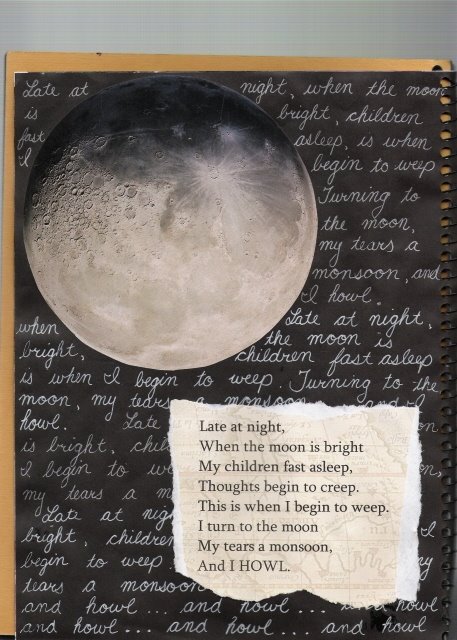 Late at night, when the moon
is bright, children
fast asleep, is when
I begin to weep
Turning to
the moon,
my tears a
monsoon, and
I howl.
Late at night,
when the moon is
bright, children fast asleep
is when I begin to weep. Turning to the
moon, my tears a monsoon, and I
howl. Late
is bright,
I begin to
my tears a
Late at
bright, children
begin to weep. my
tears a monsoon
and howl... and howl... and howl
and howl... and howl... and howl
Late at night,
When the moon is bright
My children fast asleep,
Thoughts begin to creep.
This is when I begin to weep.
I turn to the moon
My tears a monsoon,
And I HOWL.